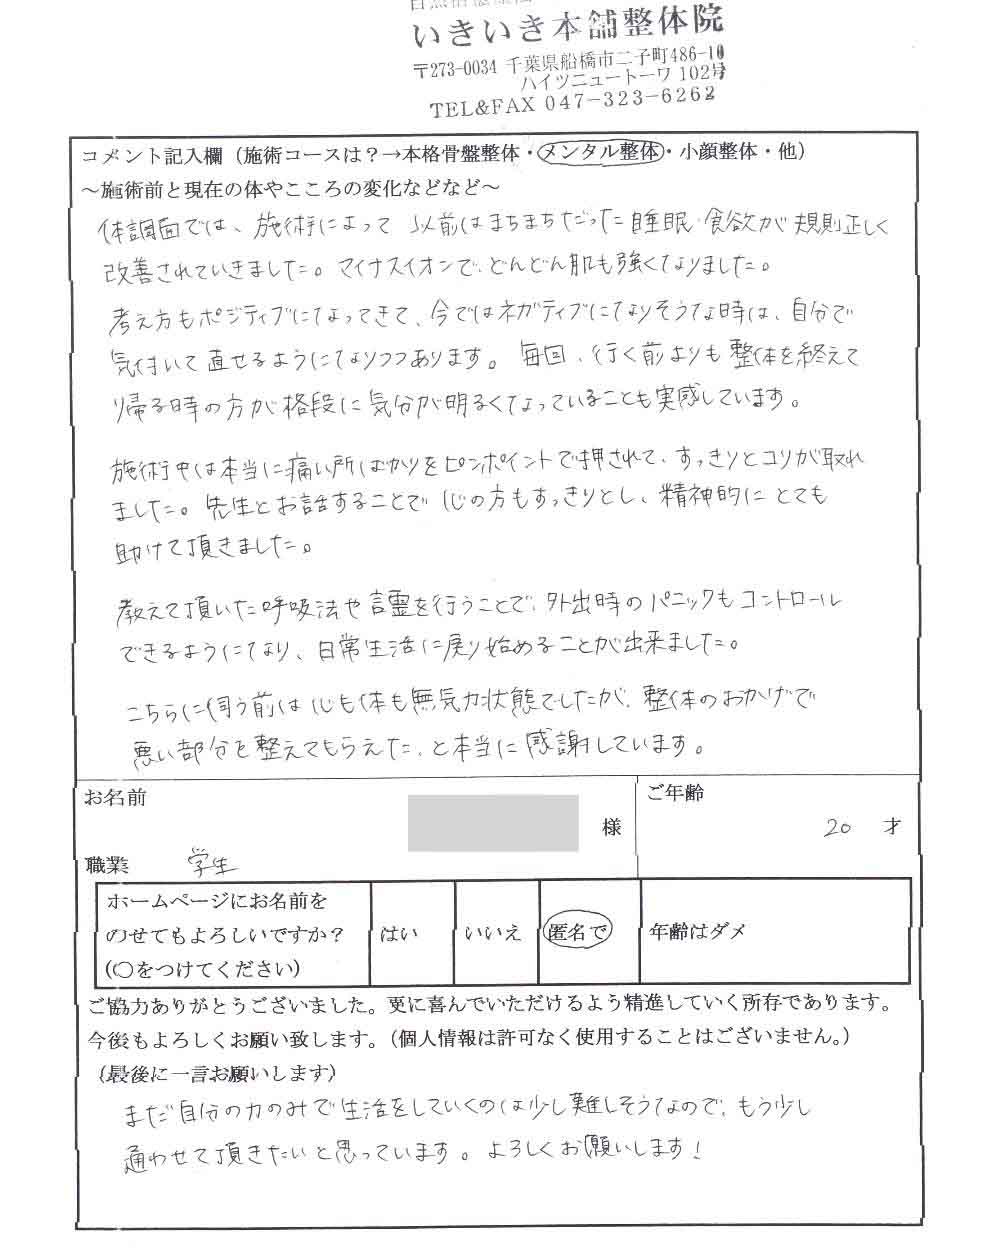 いきいき本舗整体院
〒273-0034 千葉県船橋市二子町486-10
ハイツニュートーワ 102号
TEL&FAX 047-323-6262
コメント記入欄（施術コースは？→本格骨盤整体・メンタル整体・小顔整体・他）
～施術前と現在の体やこころの変化などなど～
体調面では、施術によって 以前はまちまちだった睡眠・食欲が規則正しく
改善されていきました。マイナスイオンで、どんどん肌も強くなりました。
考え方もポジティブになってきて、今ではネガティブになりそうな時は、自分で
気付いて直せるようになりつつあります。毎回、行く前よりも整体を終えて
帰る時の方が格段に気分が明るくなっていることも実感しています。
施術中は本当に痛い所ばかりをピンポイントで押されて、すっきりとコリが取れ
ました。先生とお話することで心の方もすっきりとし、精神的にとても
助けて頂きました。
教えて頂いた呼吸法や言霊を行うことで、外出時のパニックもコントロール
できるようになり、日常生活に戻り始めることが出来ました。
こちらに伺う前は心も体も無気力状態でしたが、整体のおかげで
悪い部分を整えてもらえた、と本当に感謝しています。
お名前 様 ご年齢
20 才
職業 学生
ホームページにお名前を
のせてもよろしいですか？ はい いいえ 匿名で 年齢はダメ
(〇をつけてください)
ご協力ありがとうございました。更に喜んでいただけるよう精進していく所存であります。
今後もよろしくお願い致します。（個人情報は許可なく使用することはございません。）
（最後に一言お願いします）
まだ自分の力のみで生活をしていくのは少し難しそうなので、もう少し
通わせて頂きたいと思っています。よろしくお願いします！